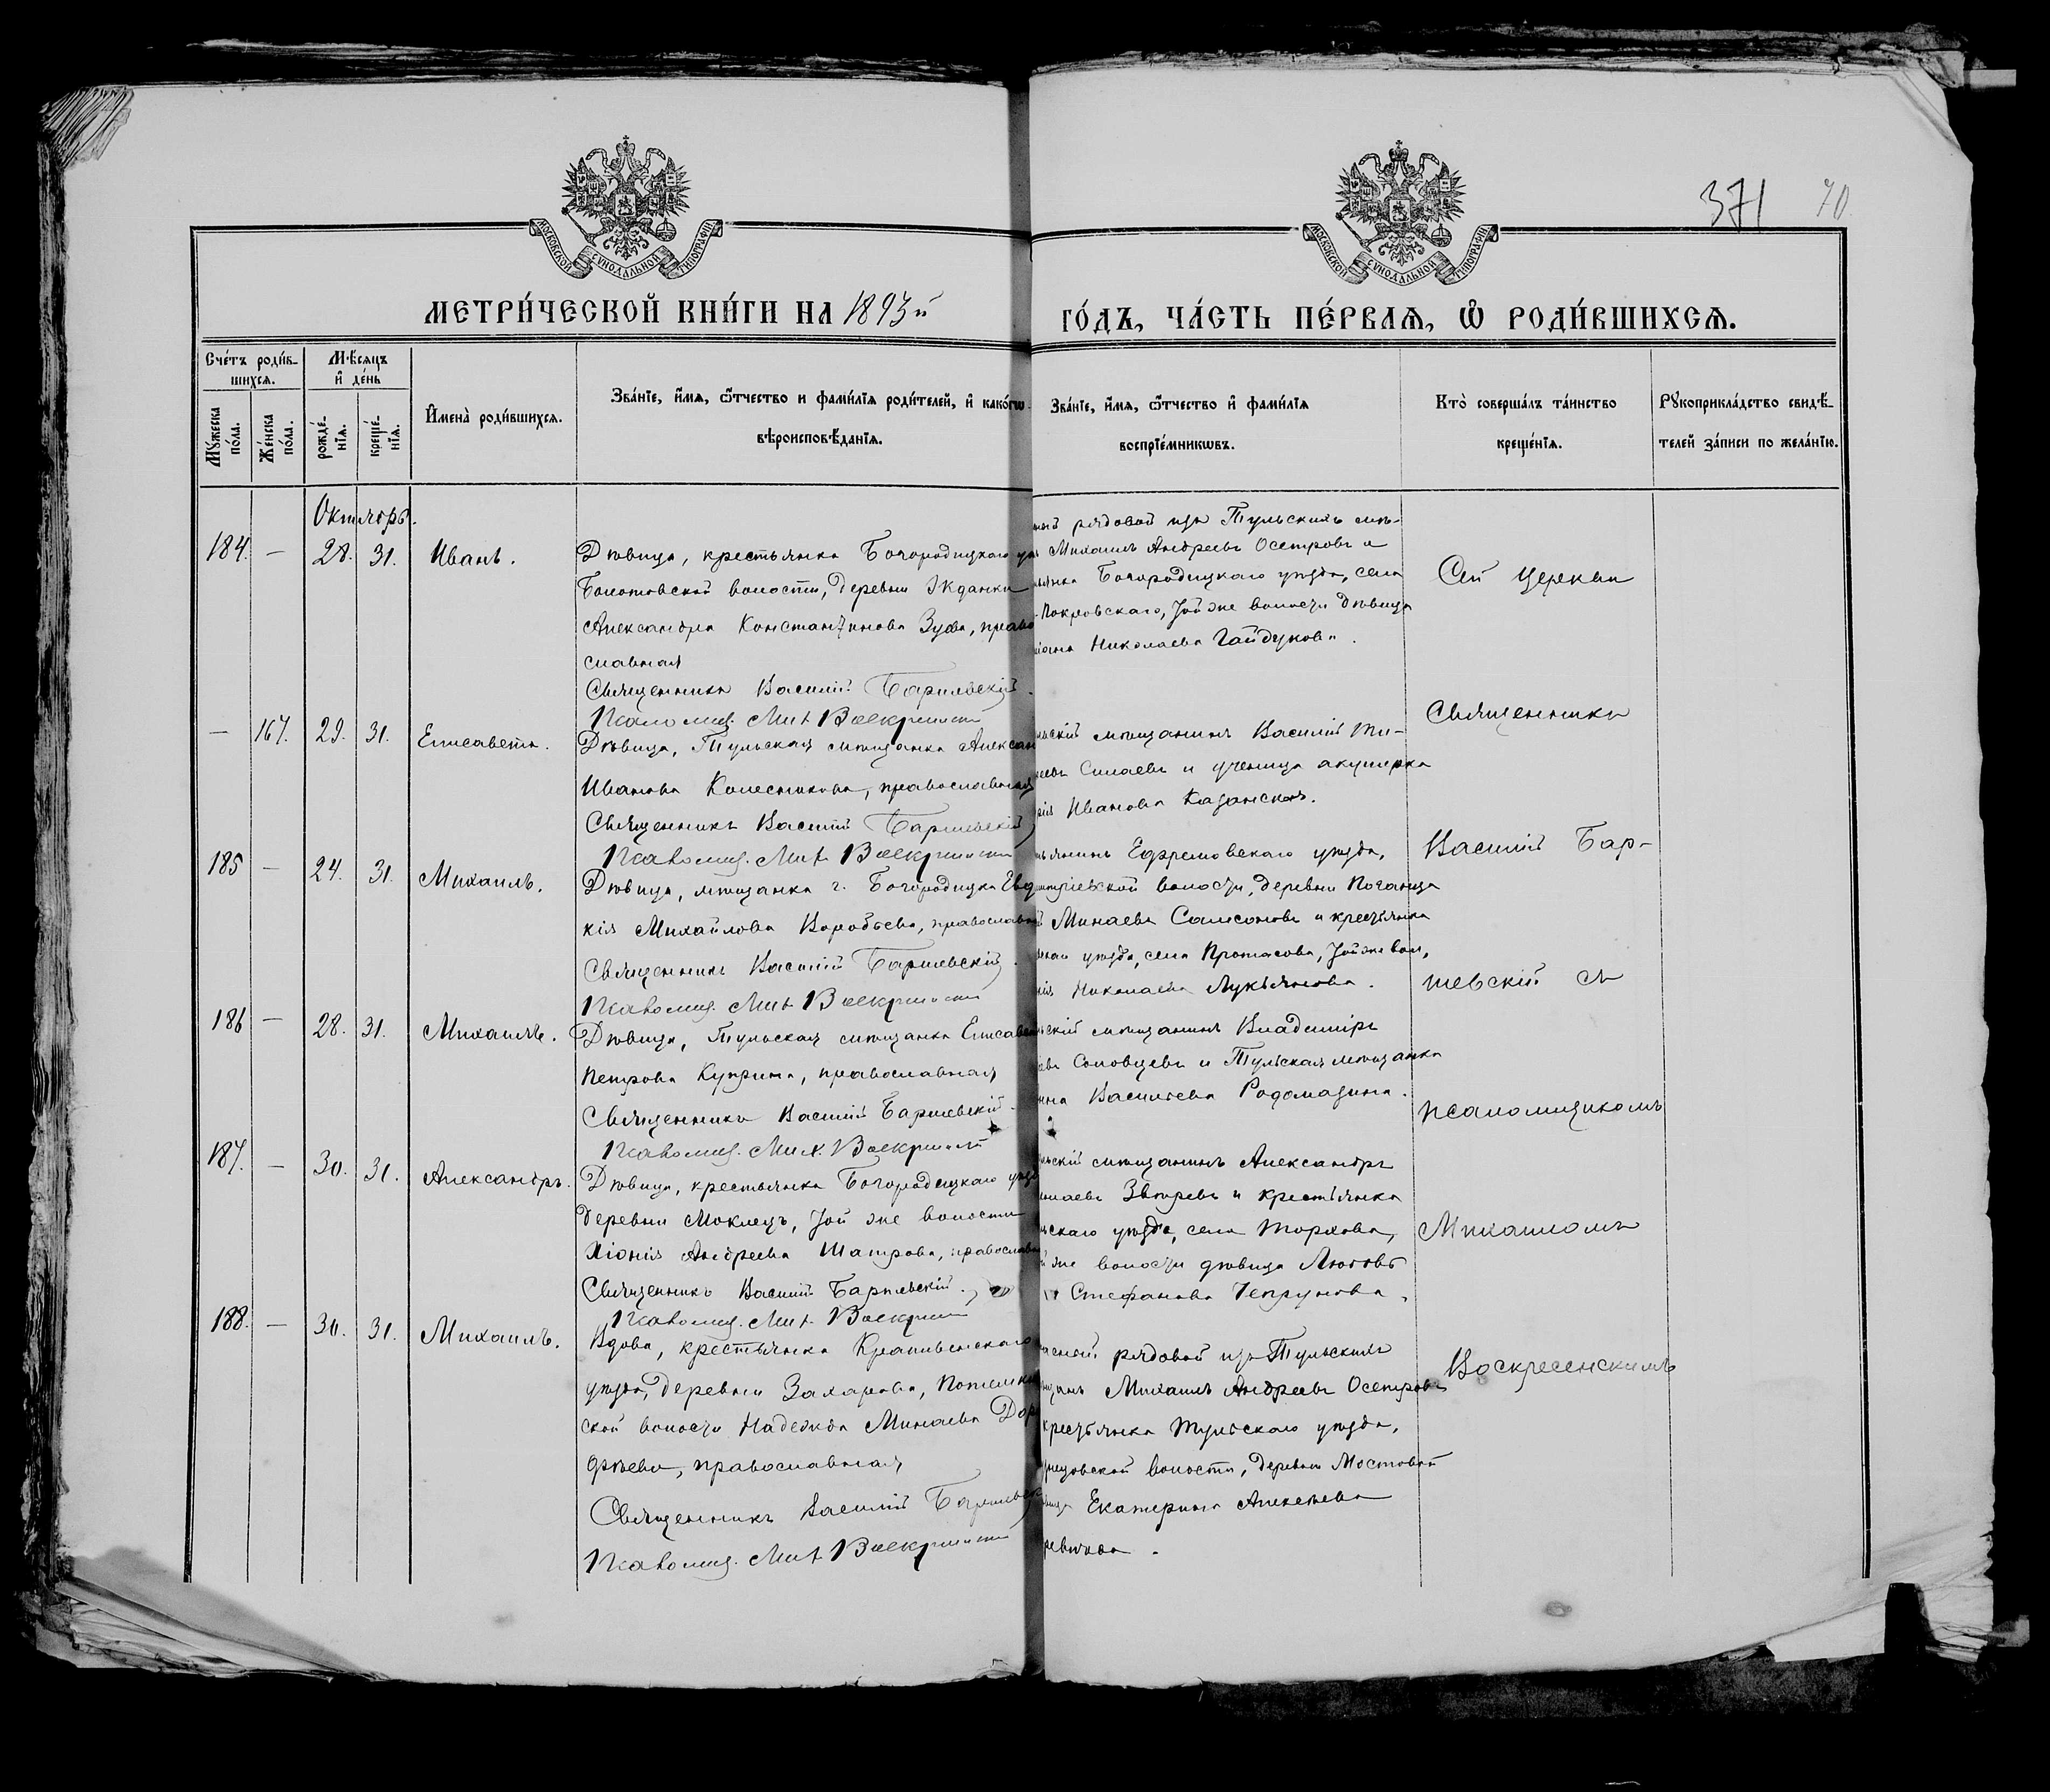 371 70
МОСКОВСКОЙ СѴНОДАЛЬНОЙ ТИПОГРАФІИ
МОСКОВСКОЙ СѴНОДАЛЬНОЙ ТИПОГРАФІИ
МЕТРИ́ЧЕСКОЙ КНИ́ГИ НА 1893й
ГО́ДЪ, ЧА́СТЬ ПЕ́РВАѦ, Ѡ РОДИ́ВШИХСѦ.
Сче́тъ роди́в-
шихсѧ.
Мꙋ́жеска по́ла.
Же́нска по́ла.
Мѣ́сяцъ
и де́нь
рожде́-
нїѧ.
креще́-
нїѧ.
Имена̀ роди́вшихсѧ.
Зва́нїе, и́мѧ, ѻ́тчество и фами́лїѧ роди́телей, и како́гѡ
вѣроисповѣ́данїѧ.
Зва́нїе, и́мѧ, ѻ́тчество и фами́лїѧ
воспрїе́мникѡвъ.
Кто̀ соверша́лъ та́инство
креще́нїѧ.
Рꙋкоприкла́дство свидѣ́-
телей за́писи по жела́нїю.
Октябрь.
184. — 28. 31. Иванъ.
Дѣвица, крестьянка Богородицкаго
Болотовской волости, деревни Жданки
Александра Константинова Зуева, право
славная
Священникъ Василій Баршевскій.
Псаломщ. Мих. Воскресенскій
рядовой изъ Тульскихъ мѣ-
Михаилъ Андреевъ Осетровъ и
Богородицкаго уѣзда, села
Покровскаго, той же волости дѣвица
Николаева Гайдукова.
— 167. 29. 31. Елисавета.
Дѣвица, Тульская мѣщанка Алексан
Иванова Колесникова, православная
Священникъ Василій Баршевскій
Псаломщ. Мих. Воскресенскій
мѣщанинъ Василій Ти-
Силаевъ и ученица акушерка
Иванова Казанская.
185 — 24. 31. Михаилъ.
Дѣвица, мѣщанка г. Богородицка Евдо
кія Михайлова Воробьева, православн
Священникъ Василій Баршевскій.
Псаломщ. Мих. Воскресенскій
Ефремовскаго уѣзда,
волости, деревни
Минаевъ Самсоновъ и крестьянка
уѣзда, села Протасова, той же вол.,
Николаева Лукьянова.
186 — 28. 31. Михаилъ.
Дѣвица, Тульская мѣщанка Елисаве
Петрова Куприна, православная
Священникъ Василій Баршевскій.
Псаломщ. Мих. Воскресенскій
мѣщанинъ Владиміръ
Соловцевъ и Тульская мѣщанка
Васильева Родомазина.
187. — 30. 31. Александръ.
Дѣвица, крестьянка Богородицкаго уѣзд
деревни Моклецъ, той же волости
Хіонія Андреева Шатрова, православн
Священникъ Василій Баршевскій.
Псаломщ. Мих. Воскресенскій
мѣщанинъ Александръ
Звѣревъ и крестьянка
уѣзда, села Торхова,
же волости дѣвица Любовь
Стефанова Чепрунова.
188. — 30. 31. Михаилъ.
Вдова, крестьянка Крапивенскаго
уѣзда, деревни Захарова,
ской волости Надежда Минаева Дор
фѣева, православная
Священникъ Василій Баршевск
Псаломщ. Мих. Воскресенскій
рядовой изъ Тульскихъ
Михаилъ Андреевъ Осетровъ
крестьянка Тульскаго уѣзда,
волости, деревни Мостовой
Екатерина Алексѣева
Сей церкви
Священникъ
Василій Бар-
шевскій съ
псаломщикомъ
Михаиломъ
Воскресенскимъ